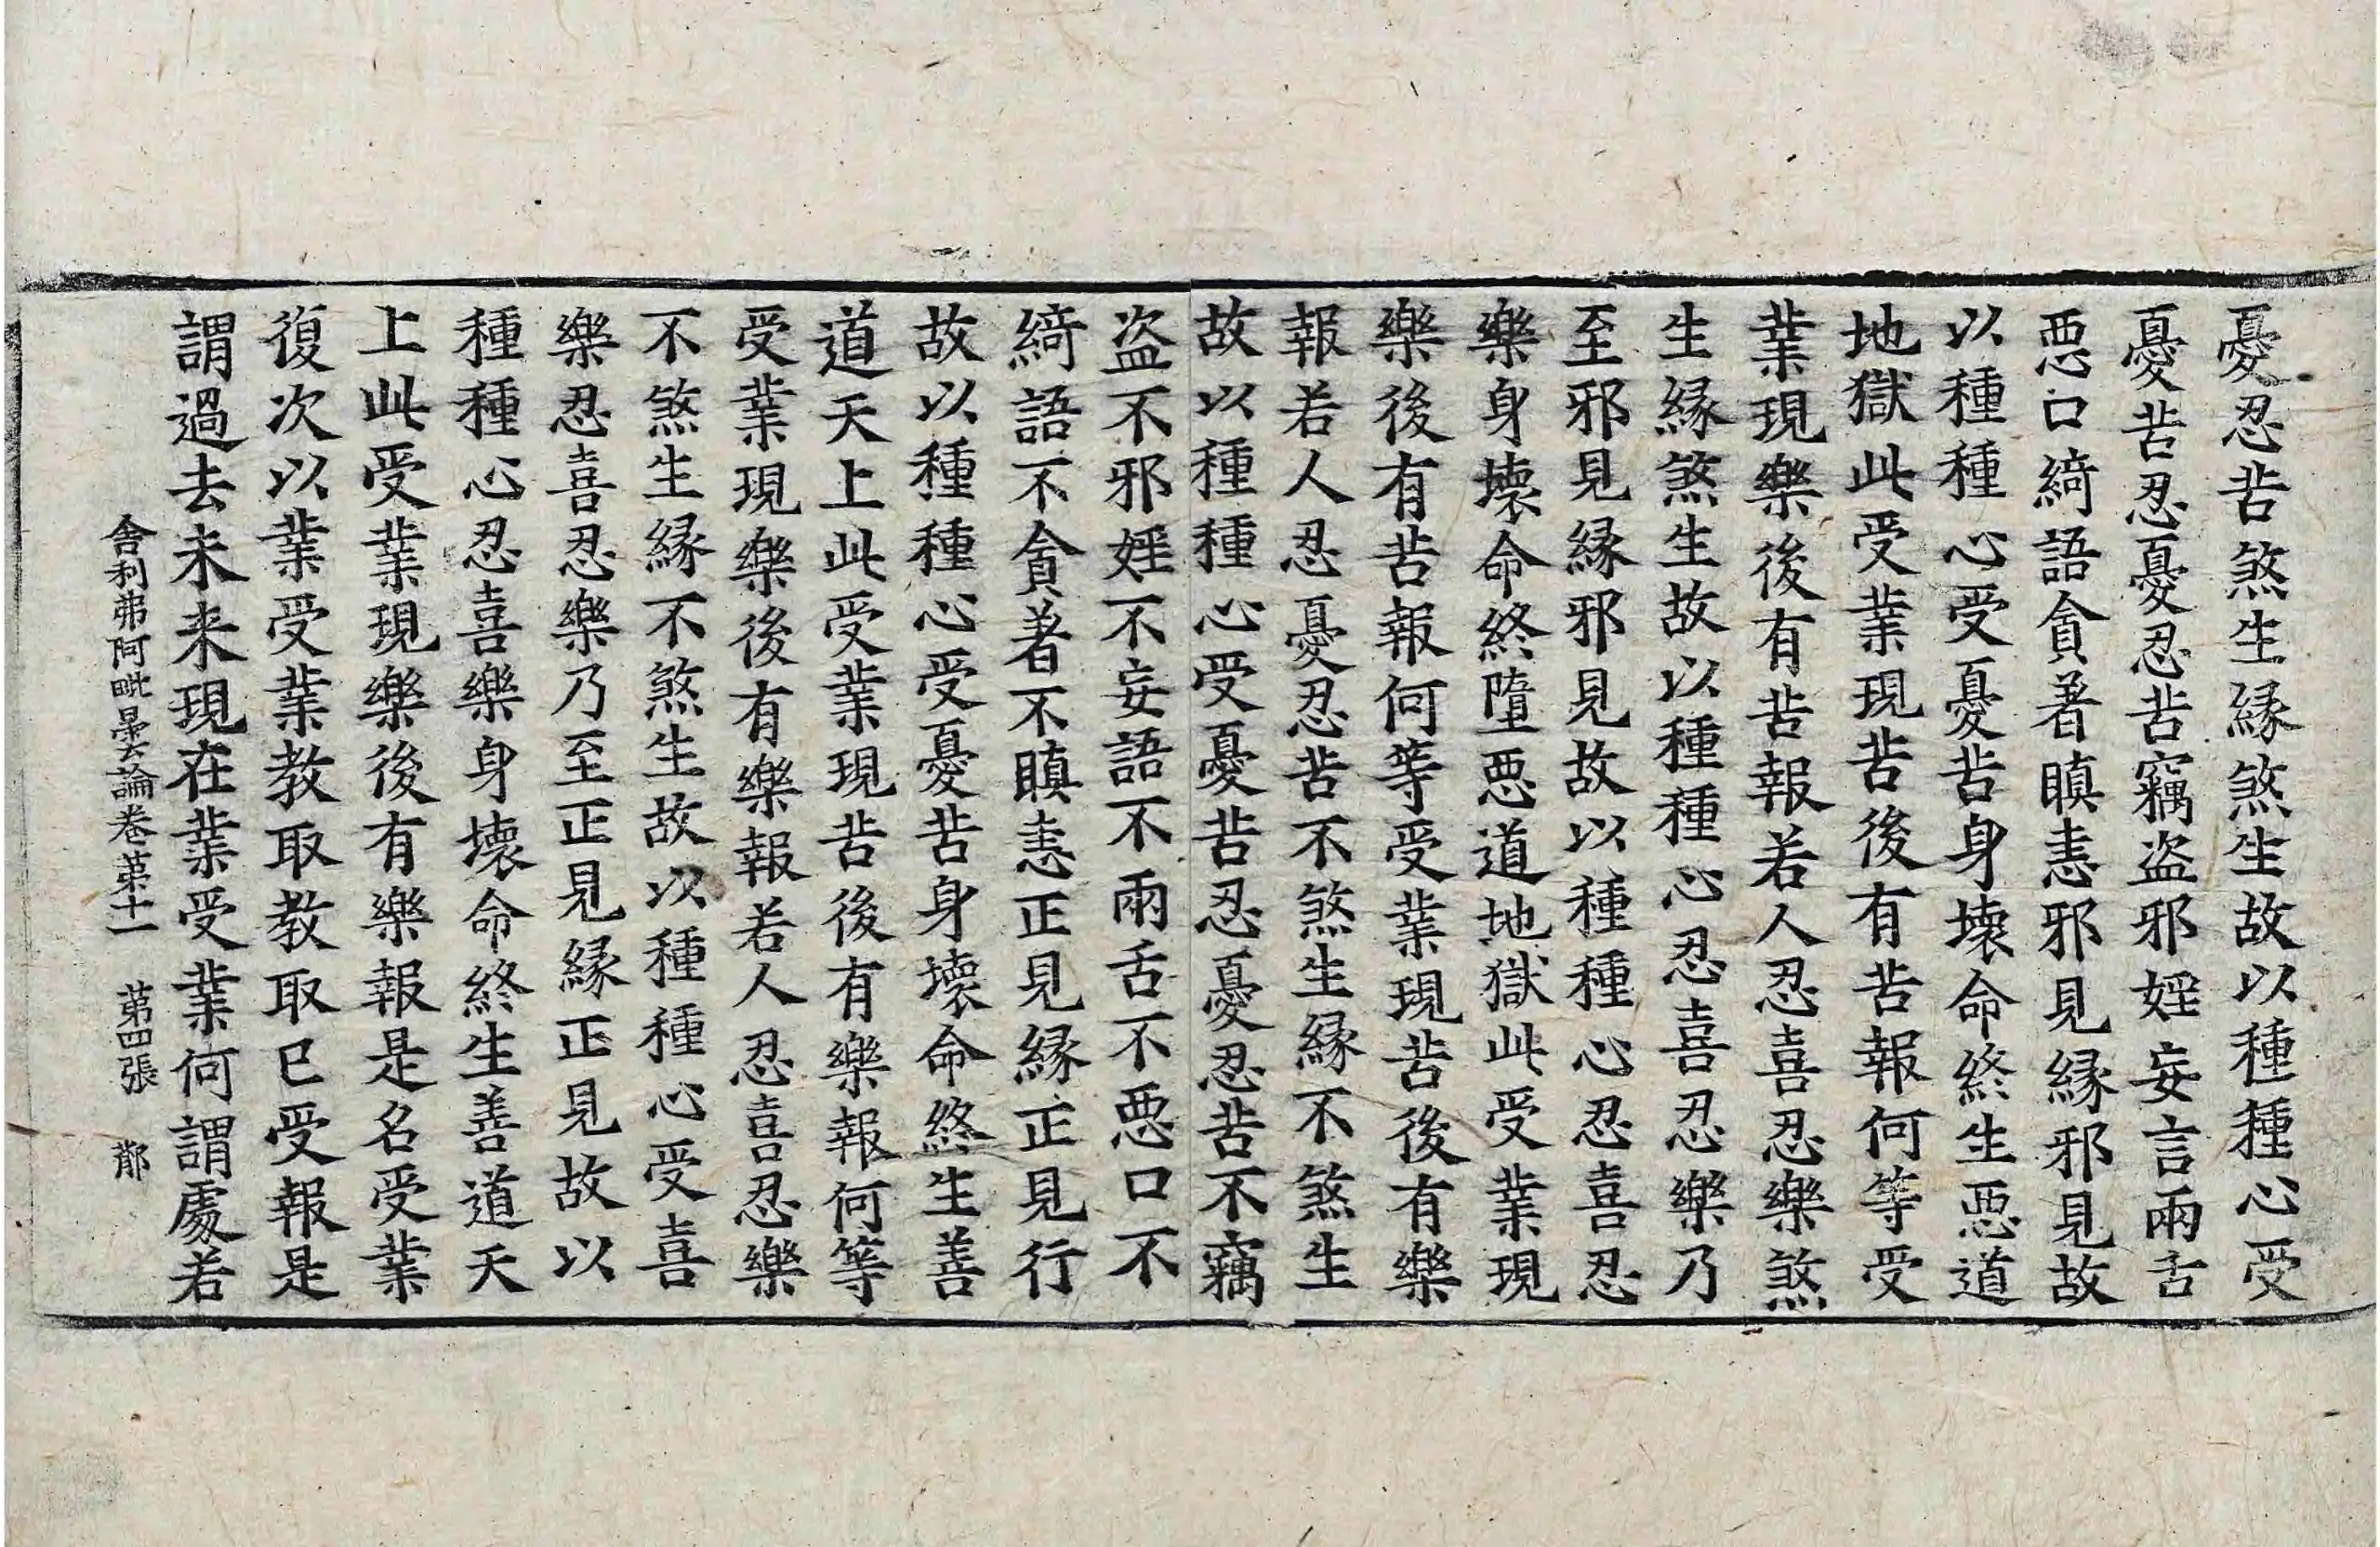 憂忍苦煞生縁煞生故以種種心受
憂苦忍憂忍苦竊盜邪婬妄言兩舌
惡口綺語貪著瞋恚邪見縁邪見故
以種種心受憂苦身壞命終生惡道
地獄此受業現苦後有苦報何等受
業現樂後有苦報若人忍喜忍樂煞
生縁煞生故以種種心忍喜忍樂乃
至邪見縁邪見故以種種心忍喜忍
樂身壞命終墮惡道地獄此受業現
樂後有苦報何等受業現苦後有樂
報若人忍憂忍苦不煞生縁不煞生
故以種種心受憂苦忍憂忍苦不竊
盜不邪婬不妄語不兩舌不惡口不
綺語不貪著不瞋恚正見縁正見行
故以種種心受憂苦身壞命終生善
道天上此受業現苦後有樂報何等
受業現樂後有樂報若人忍喜忍樂
不煞生縁不煞生故以種種心受喜
樂忍喜忍樂乃至正見縁正見故以
種種心忍喜樂身壞命終生善道天
上此受業現樂後有樂報是名受業
復次以業受業教取教取已受報是
謂過去未来現在業受業何謂處若
舍利弗阿毗曇論卷苐十一　苐四張　鄁